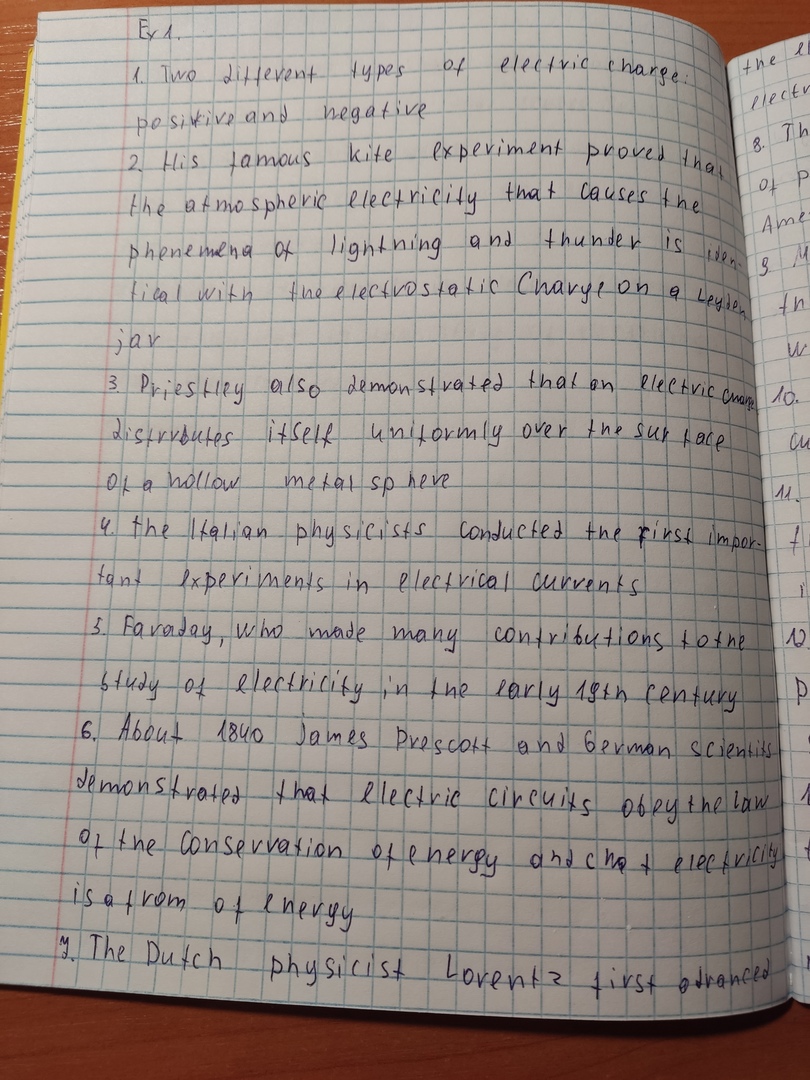 Ex 1.
1. Two different types of electric charge:
positive and negative
2. His famous kite experiment proved that
the atmospheric electricity that causes the
phenemena of lightning and thunder is iden-
tical with the electrostatic Charge on a Leyden
jar
3. Priestley also demonstrated that an electric charge
distrbutes itself uniformly over the surface
of a hollow metal sphere
4. the Italian physicists conducted the first impor-
tant experiments in electrical currents
5. Faraday, who made many contributions to the
study of electricity in the early 19th century
6. About 1840 James Prescott and German scientits
demonstrated that electric circuits obey the law
of the Conservation of energy and that electricity
is a from of energy
7. The Dutch physicist Lorentz first advanced
the el
electr
8. Th
of p
Ame
9. M
th
w
10.
cu
11.
f
i
12
p
1